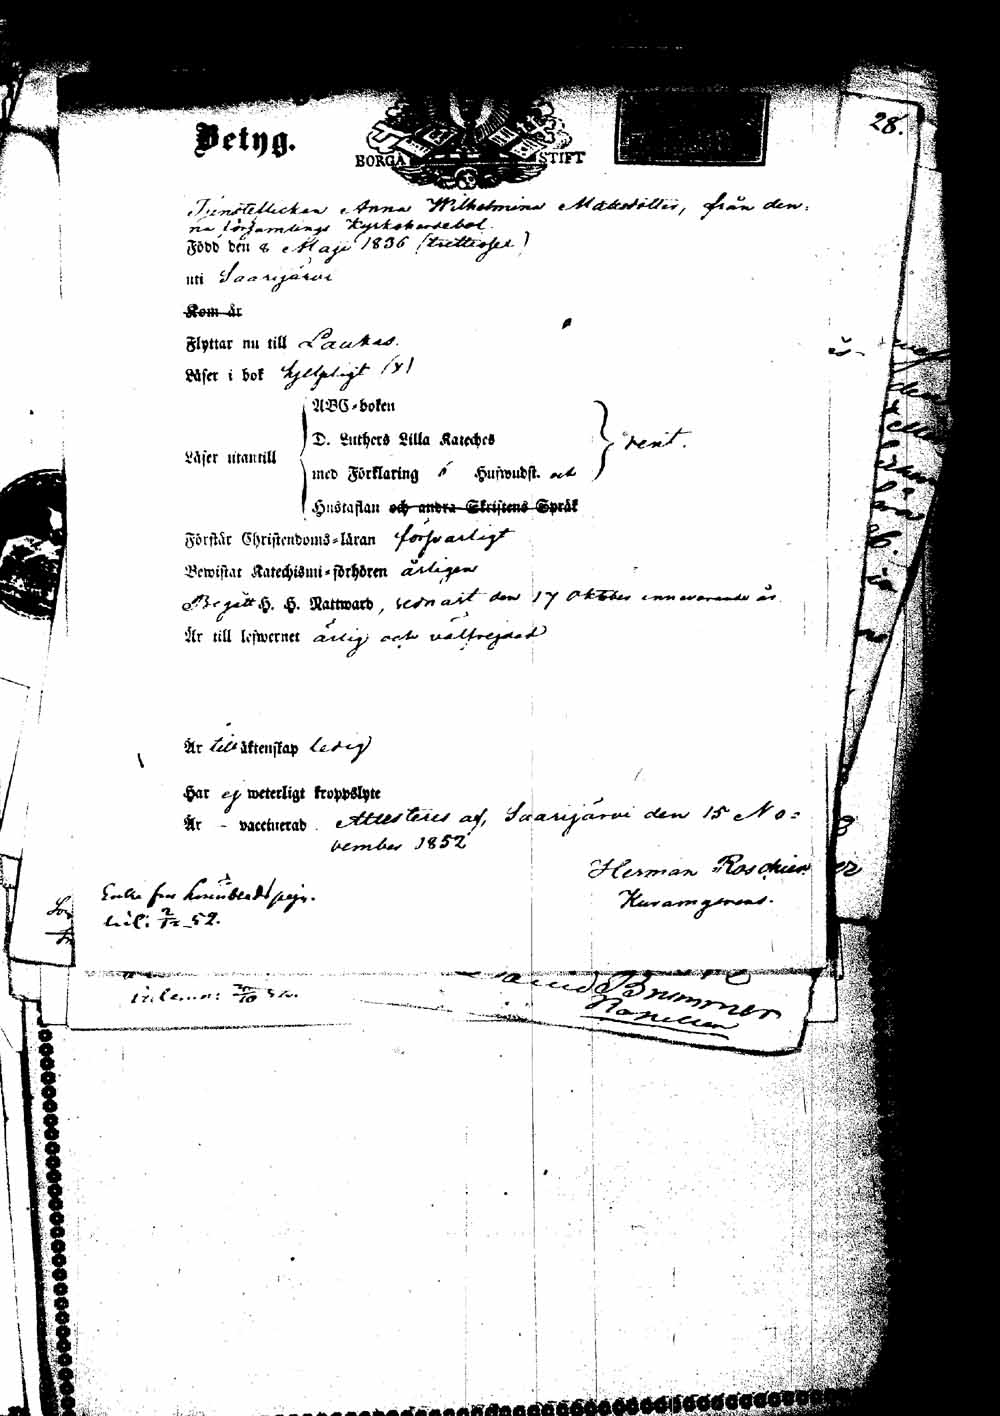 28.
Betyg.
BORGÅ STIFT
Tjensteflickan Anna Wilhelmina Matsdotter, från den-
na församlings Kyrkoherdebol.
Född den 8 Maji 1836 (trettiosex)
uti Saarijärvi
Kom år
Flyttar nu till Laukas.
Läser i bok hjelpligt (x)
ABC-boken
D. Luthers Lilla Kateches
Läser utantill
rent.
med Förklaring 6 Hufwudst. och
Hustaflan och andra Skriftens Språk
Förstår Christendoms-läran försvarligt
Bewistat Katechismi-förhören årligen
Begått H. H. Nattward, sednast den 17 Oktober innevarande år.
Är till lefwernet ärlig och välfrejdad
Är till äktenskap ledig
Har ej weterligt kroppslyte
Är - vaccinerad. Attesteras af, Saarijärvi den 15 No-
vember 1852
Herman Roschier
Enke fru
52.
Brummer